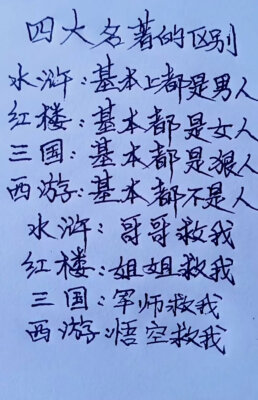 四大名著的区别
水浒：基本上都是男人
红楼：基本都是女人
三国：基本都是狠人
西游：基本都不是人
水浒：哥哥救我
红楼：姐姐救我
三国：军师救我
西游：悟空救我